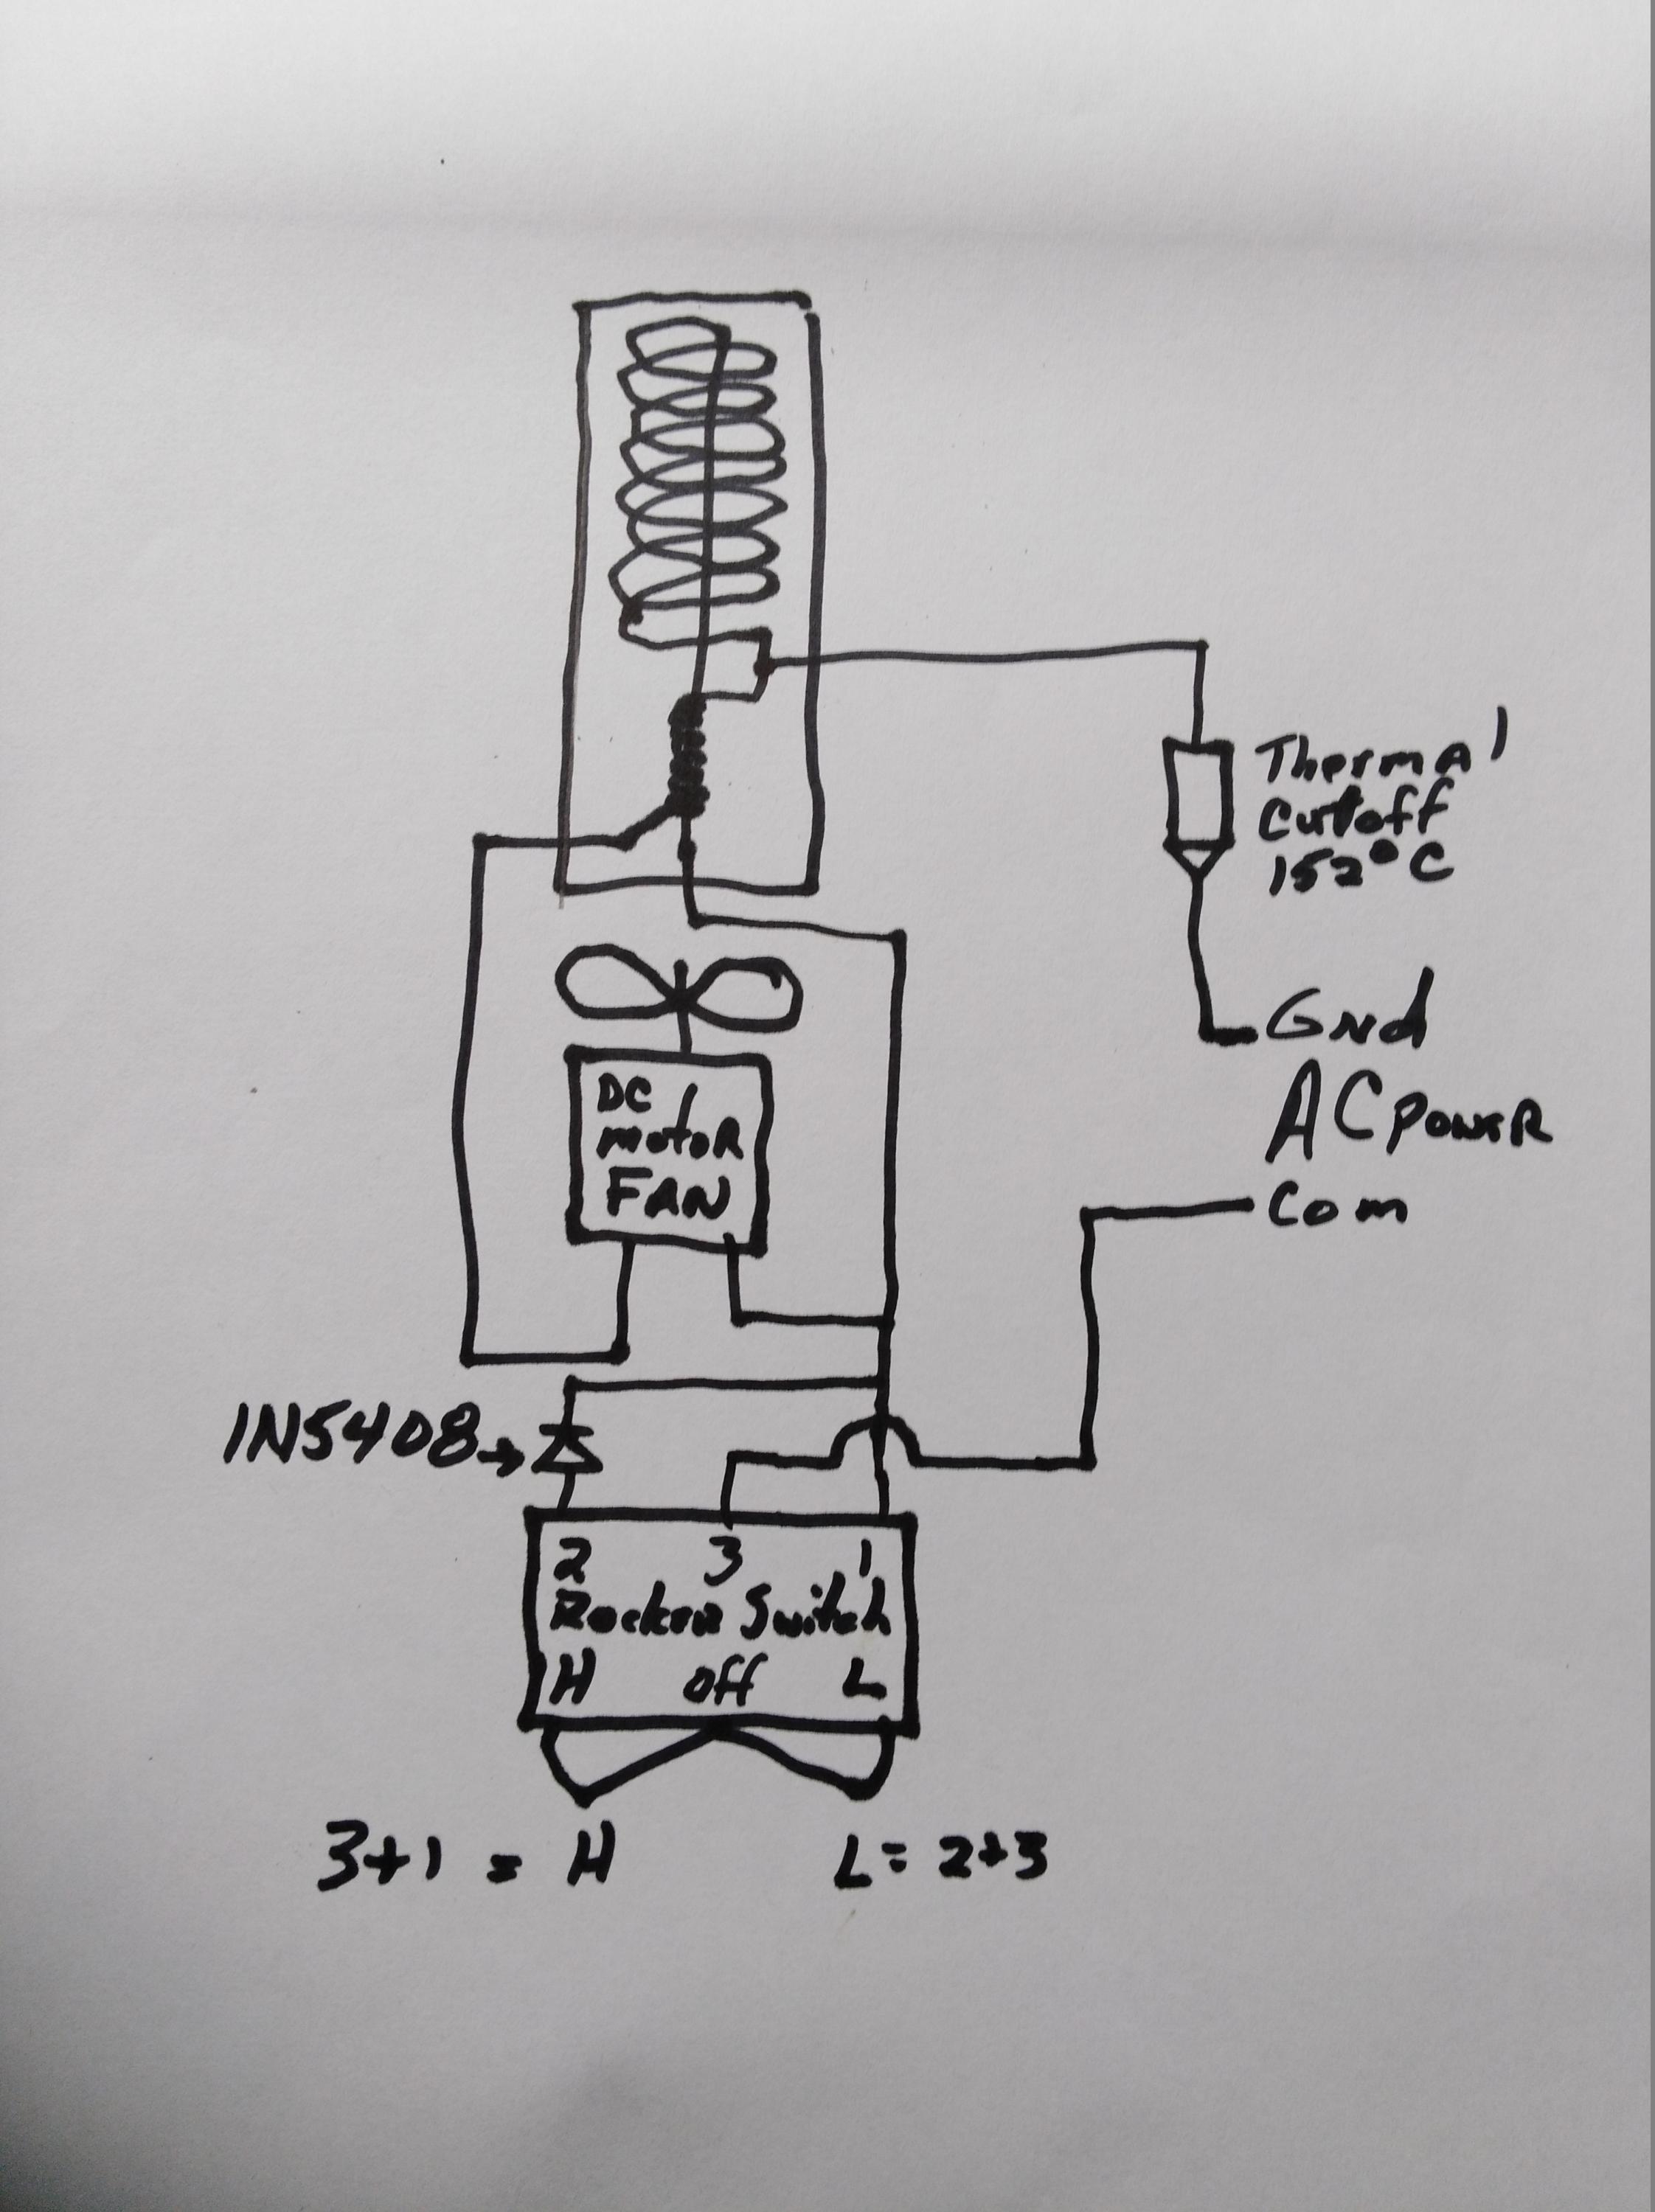 Thermal
Cutoff
152°C
Gnd
AC Power
Com
DC
Motor
FAN
1N5408→
2 3 1
Rocker Switch
H Off L
3+1 = H L = 2+3